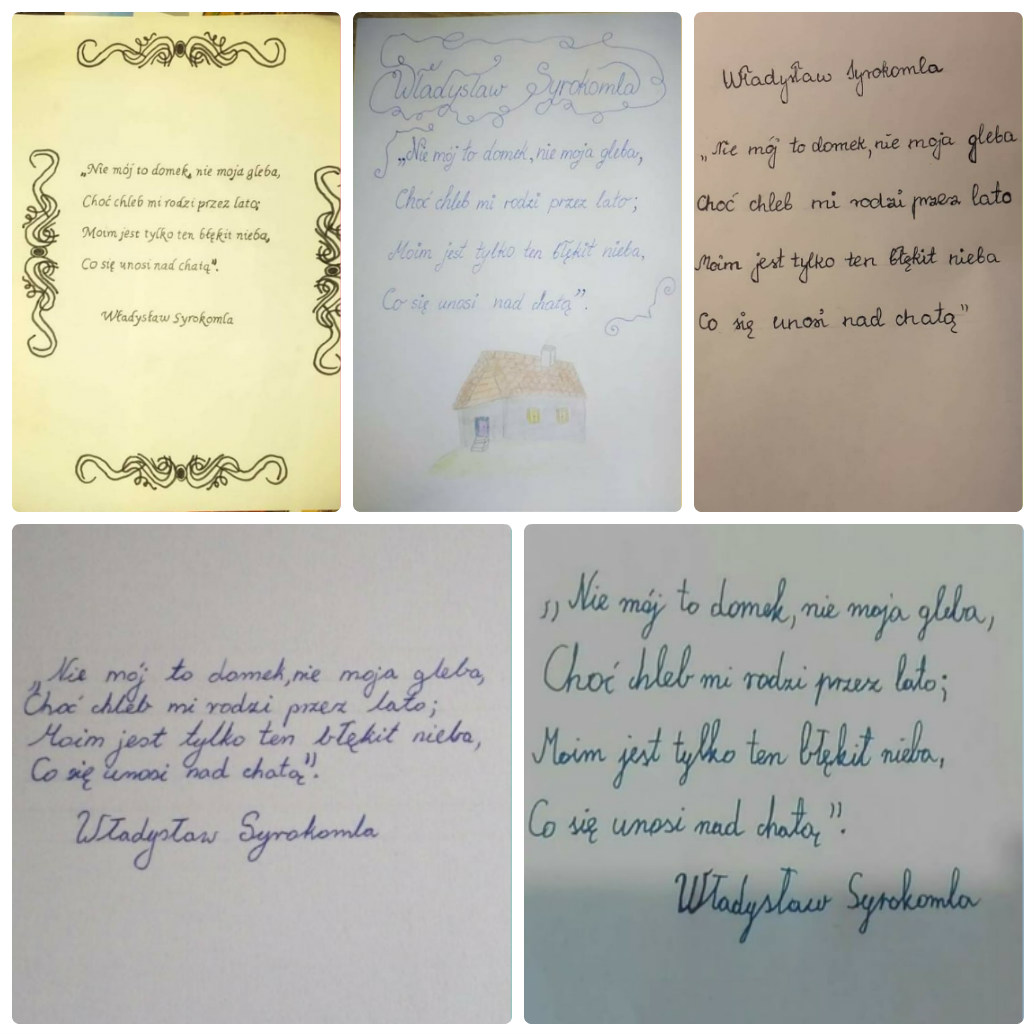 „Nie mój to domek, nie moja gleba,
Choć chleb mi rodzi przez lato;
Moim jest tylko ten błękit nieba,
Co się unosi nad chatą".
Władysław Syrokomla
Władysław Syrokomla
„Nie mój to domek, nie moja gleba,
Choć chleb mi rodzi przez lato;
Moim jest tylko ten błękit nieba,
Co się unosi nad chatą".
Władysław Syrokomla
„Nie mój to domek, nie moja gleba
Choć chleb mi rodzi przez lato
Moim jest tylko ten błękit nieba
Co się unosi nad chatą"
„Nie mój to domek, nie moja gleba,
Choć chleb mi rodzi przez lato;
Moim jest tylko ten błękit nieba,
Co się unosi nad chatą".
Władysław Syrokomla
„Nie mój to domek, nie moja gleba,
Choć chleb mi rodzi przez lato;
Moim jest tylko ten błękit nieba,
Co się unosi nad chatą".
Władysław Syrokomla